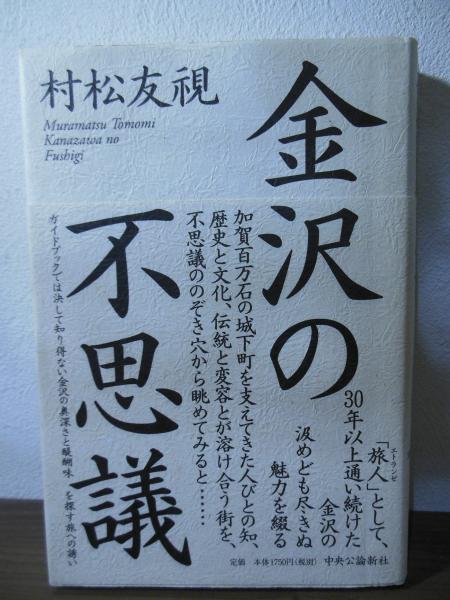 村松友視
Muramatsu Tomomi
Kanazawa no
Fushigi
金沢の
不思議
「旅人」として、
エトランゼ
30年以上通い続けた
金沢の
汲めども尽きぬ
魅力を綴る
加賀百万石の城下町を支えてきた人びとの知、
歴史と文化、伝統と変容とが溶け合う街を、
不思議ののぞき穴から眺めてみると……
ガイドブックでは決して知り得ない金沢の奥深さと醍醐味を探す旅への誘い
定価 本体1750円(税別) 中央公論新社